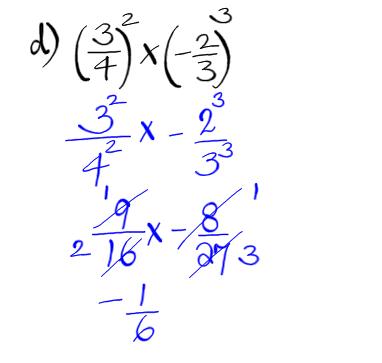 d) (3/4)² × (-2/3)³
3²/4² × - 2³/3³
1 1
2 9/16 × - 8/27 3
- 1/6